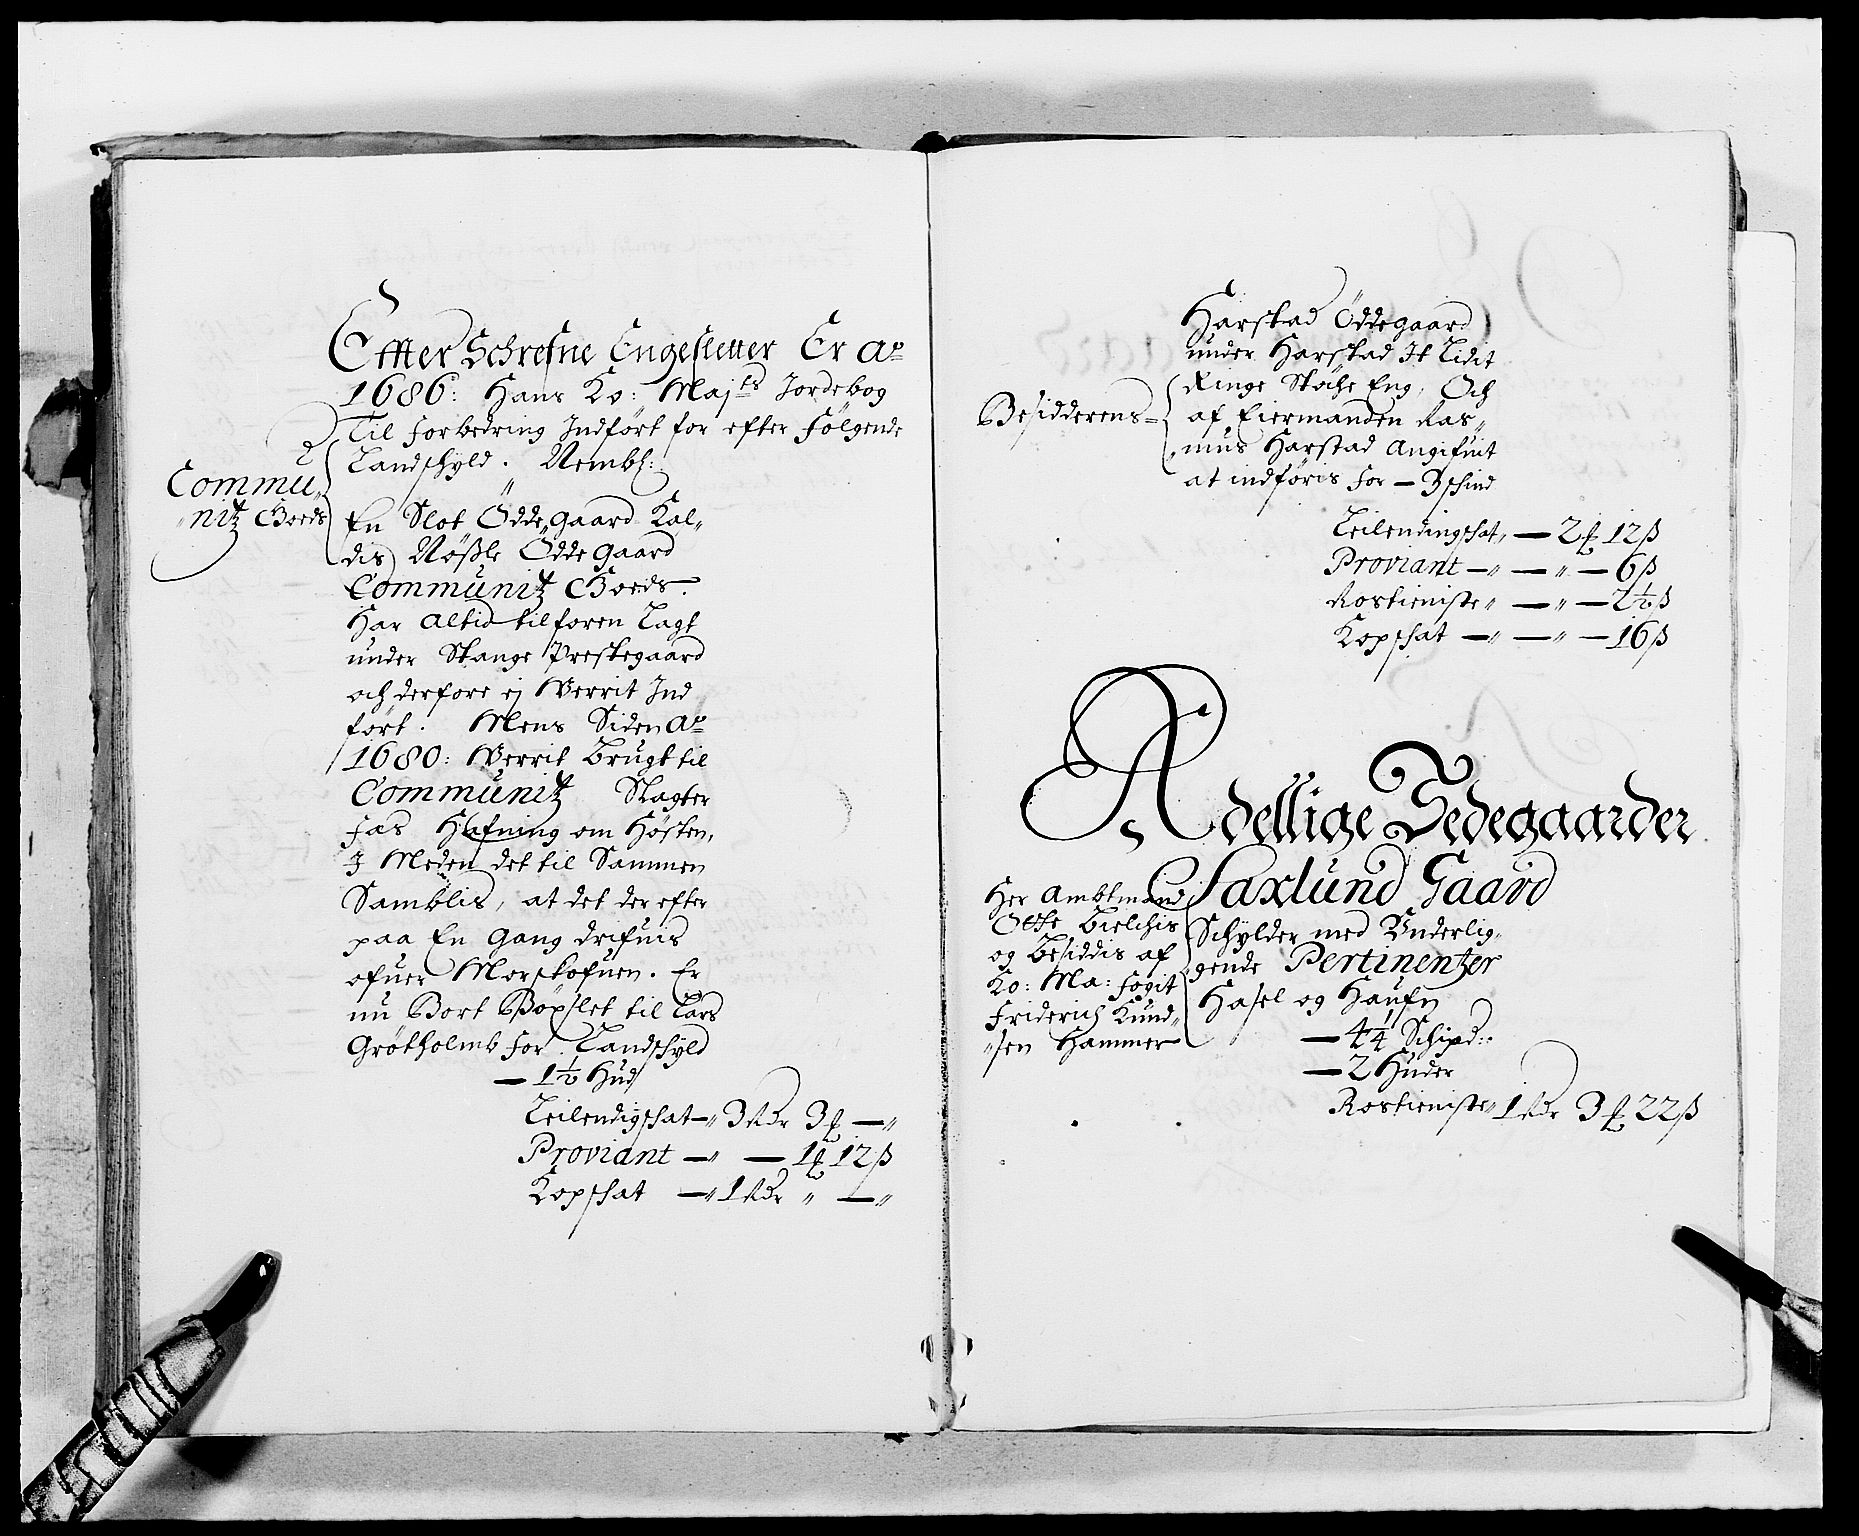 Effter Schrefne Engesletter Er Ao
1686: Hans Ko: Majts Jordebog
Til Forbedring Indført for efter Følgende
Landschyld. Nembl:
Commu„
nitz Goeds
En Slot Ödde gaard Kal„
dis Nøßle Ödde gaard
Communitz Goeds.
Har altid tilforen Lagt
under Stange Prestegaard
och derfore ej Werrit Ind
ført. Mens Siden Ao
1680: Werrit Brugt til
Communitz Slagter
Fæs Hafning om Høsten,
I Meden det til Sammen
Samblis, at det der efter
paa En gang drifuis
ofuer Morskofuen. Er
nu Bort Böxslet til Lars
Grøtholmb for Landschyld
— 1½ Hud
Leilendigschat —„ 3 Rdr 3 ſ —„
Proviant —„ — 1 ſ 12 ß
Kopschat —„ 1 Rdr „ —„
Harstad Öddegaard
under Harstad It Lidit
Ringe Støche Eng, Och
Besidderens
af Eiermanden Ras„
mus Harstad Angifuit
at indføris for — 3 schind
Leilendingschat„ — 2 ſ 12 ß
Proviant —„ — „ — 6 ß
Rostieniste„ — „ — 2½ ß
Kopschat —„ — „ — 16 ß
Adellige Sedegaarder
Saxlund Gaard
Her Ambtmand
Otte Bielchis
og Besiddis af
Ko: Ma: fogit
Friderich Kund„
„sen Hammer
Schylder med Underlig„
gende Pertinentzer
Hasel og Haufn
— 4¼ Schipd:
— 2 Huder
Rostieniste„ 1 Rdr 3 ſ 22 ß